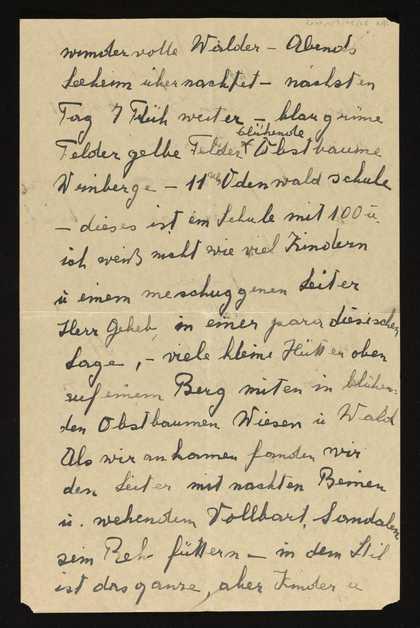 wundervolle Wälder – Abends
Seeheim übernachtet – nächsten
Tag 7 Früh weiter – blaugrüne
blühende
Felder gelbe Felder Obstbäume
Weinberge – 11 Odenwaldschule
– dieses ist ein Schule mit 100 u.
ich weiß nicht wie viel Kindern
u einem meschuggenen Leiter
Herr Geheb, in einer paradiesischen
Lage, – viele kleine Hütten oben
auf einem Berg mitten in blühen-
den Obstbaumen Wiesen u Wald
Als wir ankamen fanden wir
den Leiter mit nackten Beinen
u. wehendem Vollbart, Sandalen
sein Reh füttern – in dem Stil
ist das ganze, aber Kinder u